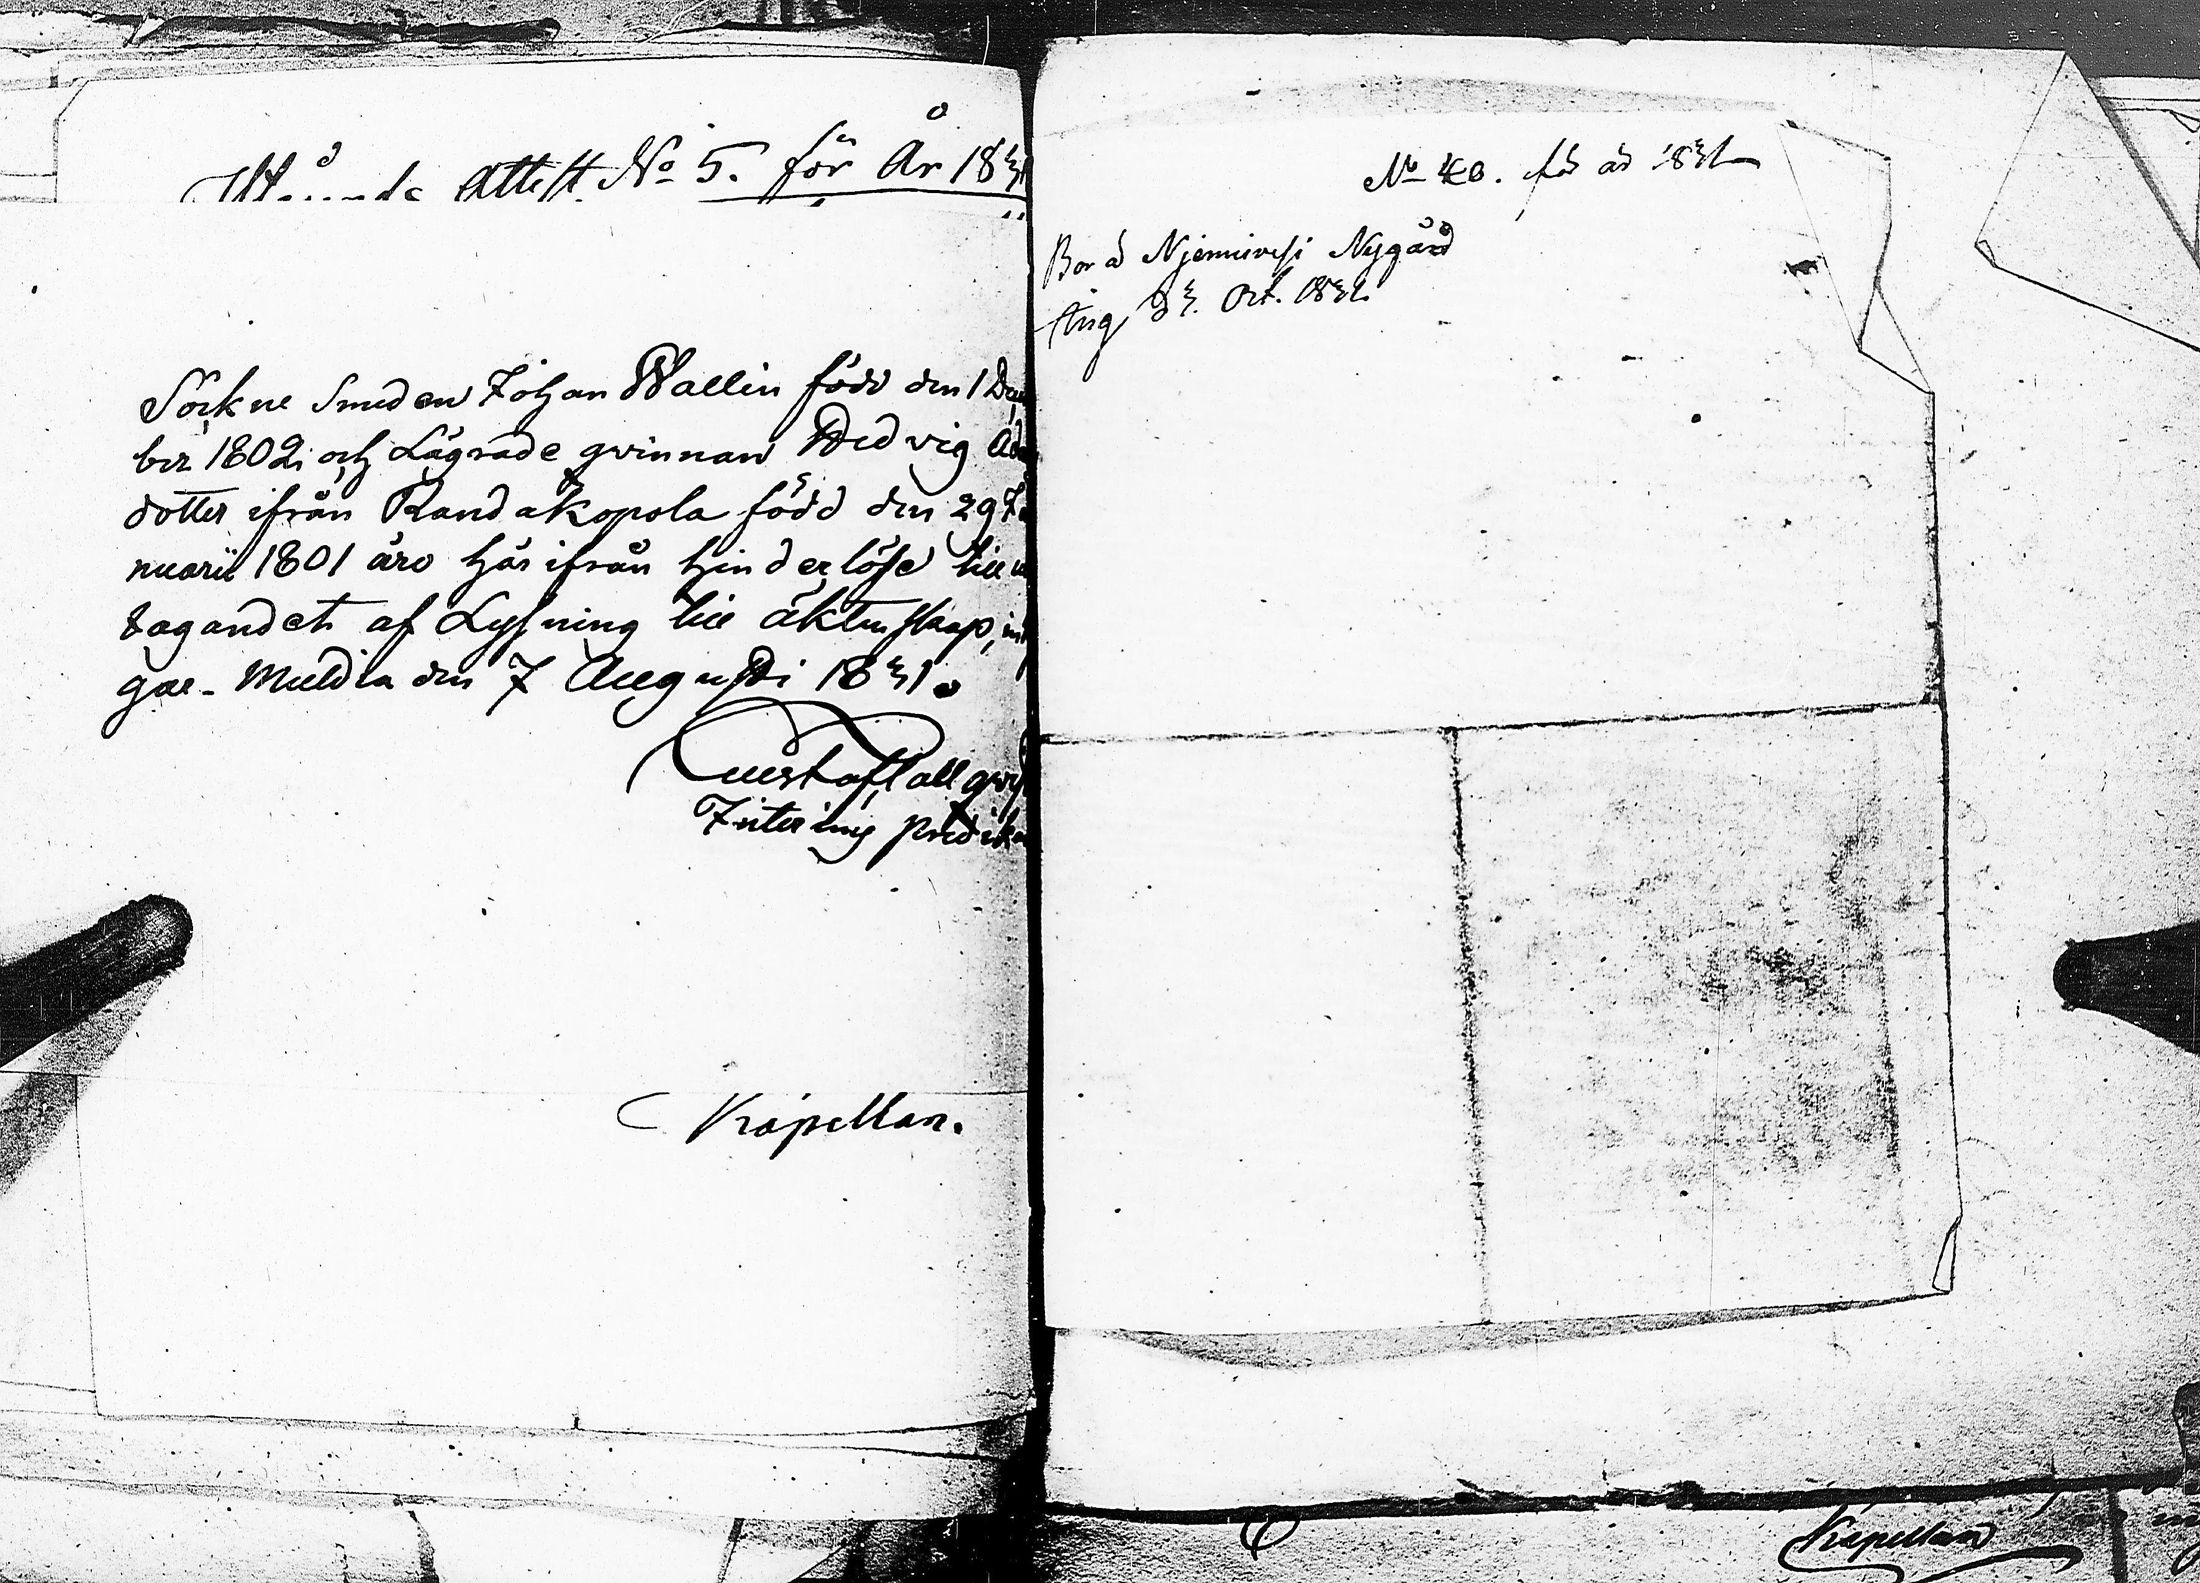 Attest No 5. för År 1831
Sockne Smeden Johan Wallin född den 1 De
ber 1802 och Lägrade qwinnan Hedvig Ad
dotter ifrån Randakopola född den 29 Ja
nuarii 1801 äro här ifrån hinderlöse till
tagandet af Lysning till äktenskap,
gar. Muldia den 7 Augusti 1831.
Gustaf
Interims predika
Kapellan.
No 40. för år 1831
Bor å Njemivesi Nygård
Oct. 1831
Kapellan